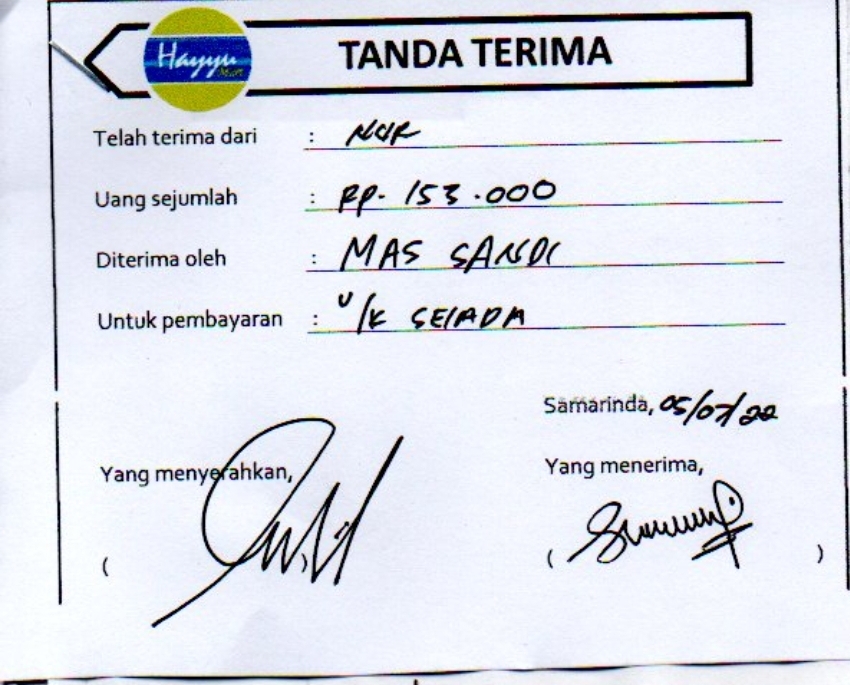 Hayyu Mart
TANDA TERIMA
Telah terima dari : NUR
Uang sejumlah : RP. 153.000
Diterima oleh : MAS SANDI
Untuk pembayaran : U/K SELADA
Samarinda, 05/07/22
Yang menyerahkan, Yang menerima,
( ) ( )